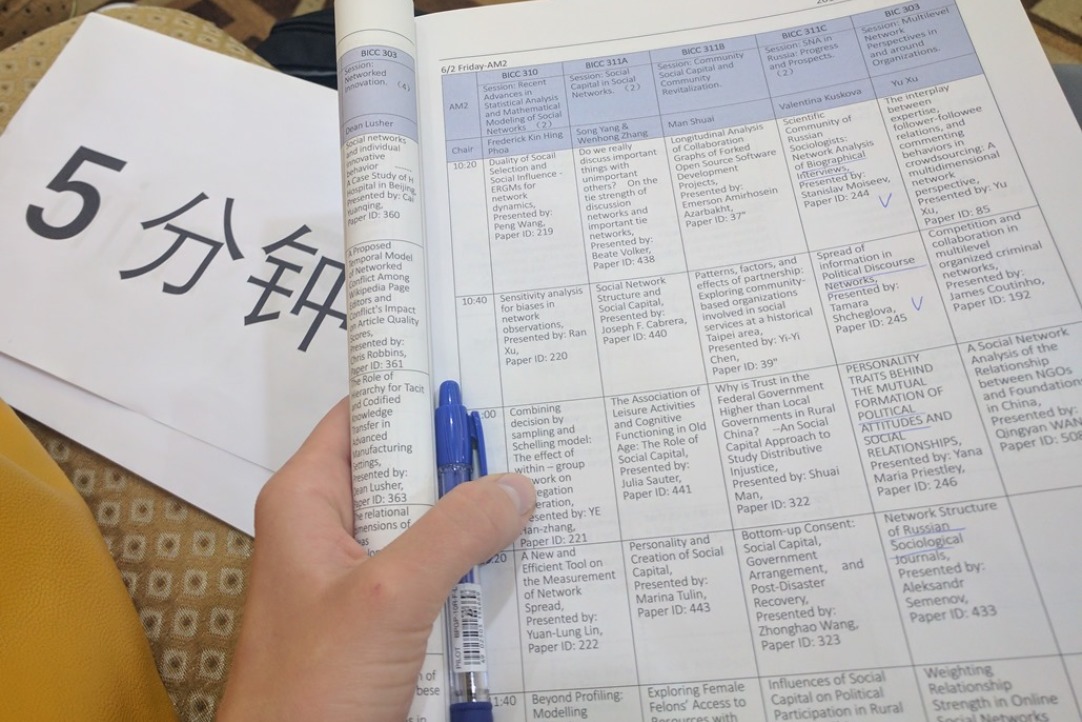 5 分钟
BICC 303
Session:
Networked
Innovation. （4）
Dean Lusher
Social networks
and individual
innovative
behavior
A Case Study of
Hospital in Beijing,
Presented by: Cai
Yuanqing,
Paper ID: 360
A Proposed
Temporal Model
of Networked
Conflict Among
Wikipedia Page
Editors and
Conflict's Impact
on Article Quality
Scores,
Presented by:
Chris Robbins,
Paper ID: 361
The Role of
Hierarchy for Tacit
and Codified
Knowledge
Transfer in
Advanced
Manufacturing
Settings,
Presented by:
Dean Lusher,
Paper ID: 363
The relational
6/2 Friday-AM2
AM2
BICC 310
Session: Recent
Advances in
Statistical Analysis
and Mathematical
Modeling of Social
Networks （2）
BICC 311A
Session: Social
Capital in Social
Networks. （2）
BICC 311B
Session: Community
Social Capital and
Community
Revitalization.
BICC 311C
Session: SNA in
Russia: Progress
and Prospects.
（2）
BIC 303
Session: Multilevel
Network
Perspectives in
and around
Organizations.
Chair
Frederick Kin Hing
Phoa
Song Yang &
Wenhong Zhang
Man Shuai
Valentina Kuskova
Yu Xu
10:20
Duality of Socail
Selection and
Social Influence -
ERGMs for
network
dynamics,
Presented by:
Peng Wang,
Paper ID: 219
Do we really
discuss important
things with
unimportant
others? On the
tie strength of
discussion
networks and
important tie
networks,
Presented by:
Beate Volker,
Paper ID: 438
Longitudinal Analysis
of Collaboration
Graphs of Forked
Open Source Software
Development
Projects,
Presented by:
Emerson Amirhosein
Azarbakht,
Paper ID: 37"
Scientific
Community of
Russian
Sociologists:
Network Analysis
of Biographical
Interviews,
Presented by:
Stanislav Moiseev,
Paper ID: 244
The interplay
between
expertise,
follower-followee
relations, and
commenting
behaviors in
crowdsourcing: A
multidimensional
network
perspective,
Presented by: Yu
Xu,
Paper ID: 85
10:40
Sensitivity analysis
for biases in
network
observations,
Presented by: Ran
Xu,
Paper ID: 220
Social Network
Structure and
Social Capital,
Presented by:
Joseph F. Cabrera,
Paper ID: 440
Patterns, factors, and
effects of partnership:
Exploring community-
based organizations
involved in social
services at a historical
Taipei area,
Presented by: Yi-Yi
Chen,
Paper ID: 39"
Spread of
information in
Political Discourse
Networks,
Presented by:
Tamara
Shcheglova,
Paper ID: 245
Competition and
collaboration in
multilevel
organized criminal
networks,
Presented by:
James Coutinho,
Paper ID: 192
:00
Combining
decision by
sampling and
Schelling model:
The effect of
within – group
Presented by: YE
Han-zhang,
Paper ID: 221
The Association of
Leisure Activities
and Cognitive
Functioning in Old
Age: The Role of
Social Capital,
Presented by:
Julia Sauter,
Paper ID: 441
Why is Trust in the
Federal Government
Higher than Local
Governments in Rural
China? --An Social
Capital Approach to
Study Distributive
Injustice,
Presented by: Shuai
Man,
Paper ID: 322
PERSONALITY
TRAITS BEHIND
THE MUTUAL
FORMATION OF
POLITICAL
ATTITUDES AND
SOCIAL
RELATIONSHIPS,
Presented by: Yana
Maria Priestley,
Paper ID: 246
A Social Network
Analysis of the
Relationship
between NGOs
and Foundations
in China,
Presented by:
Qingyan WAN
Paper ID: 508
:20
A New and
Efficient Tool on
the Measurement
of Network
Spread,
Presented by:
Yuan-Lung Lin,
Paper ID: 222
Personality and
Creation of Social
Capital,
Presented by:
Marina Tulin,
Paper ID: 443
Bottom-up Consent:
Social Capital,
Government
Arrangement, and
Post-Disaster
Recovery,
Presented by:
Zhonghao Wang,
Paper ID: 323
Network Structure
of Russian
Sociological
Journals,
Presented by:
Aleksandr
Semenov,
Paper ID: 433
1:40
Beyond Profiling:
Modelling
Exploring Female
Felons' Access to
Resources with
Influences of Social
Capital on Political
Participation in Rural
Weighting
Relationship
Strength in Online
PILOT